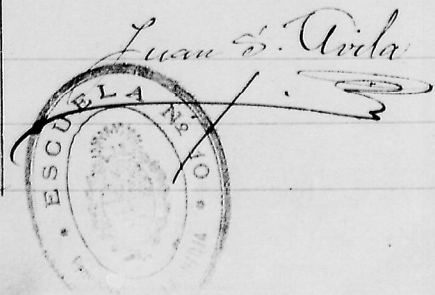 Juan S. Avila
ESCUELA Nº 10